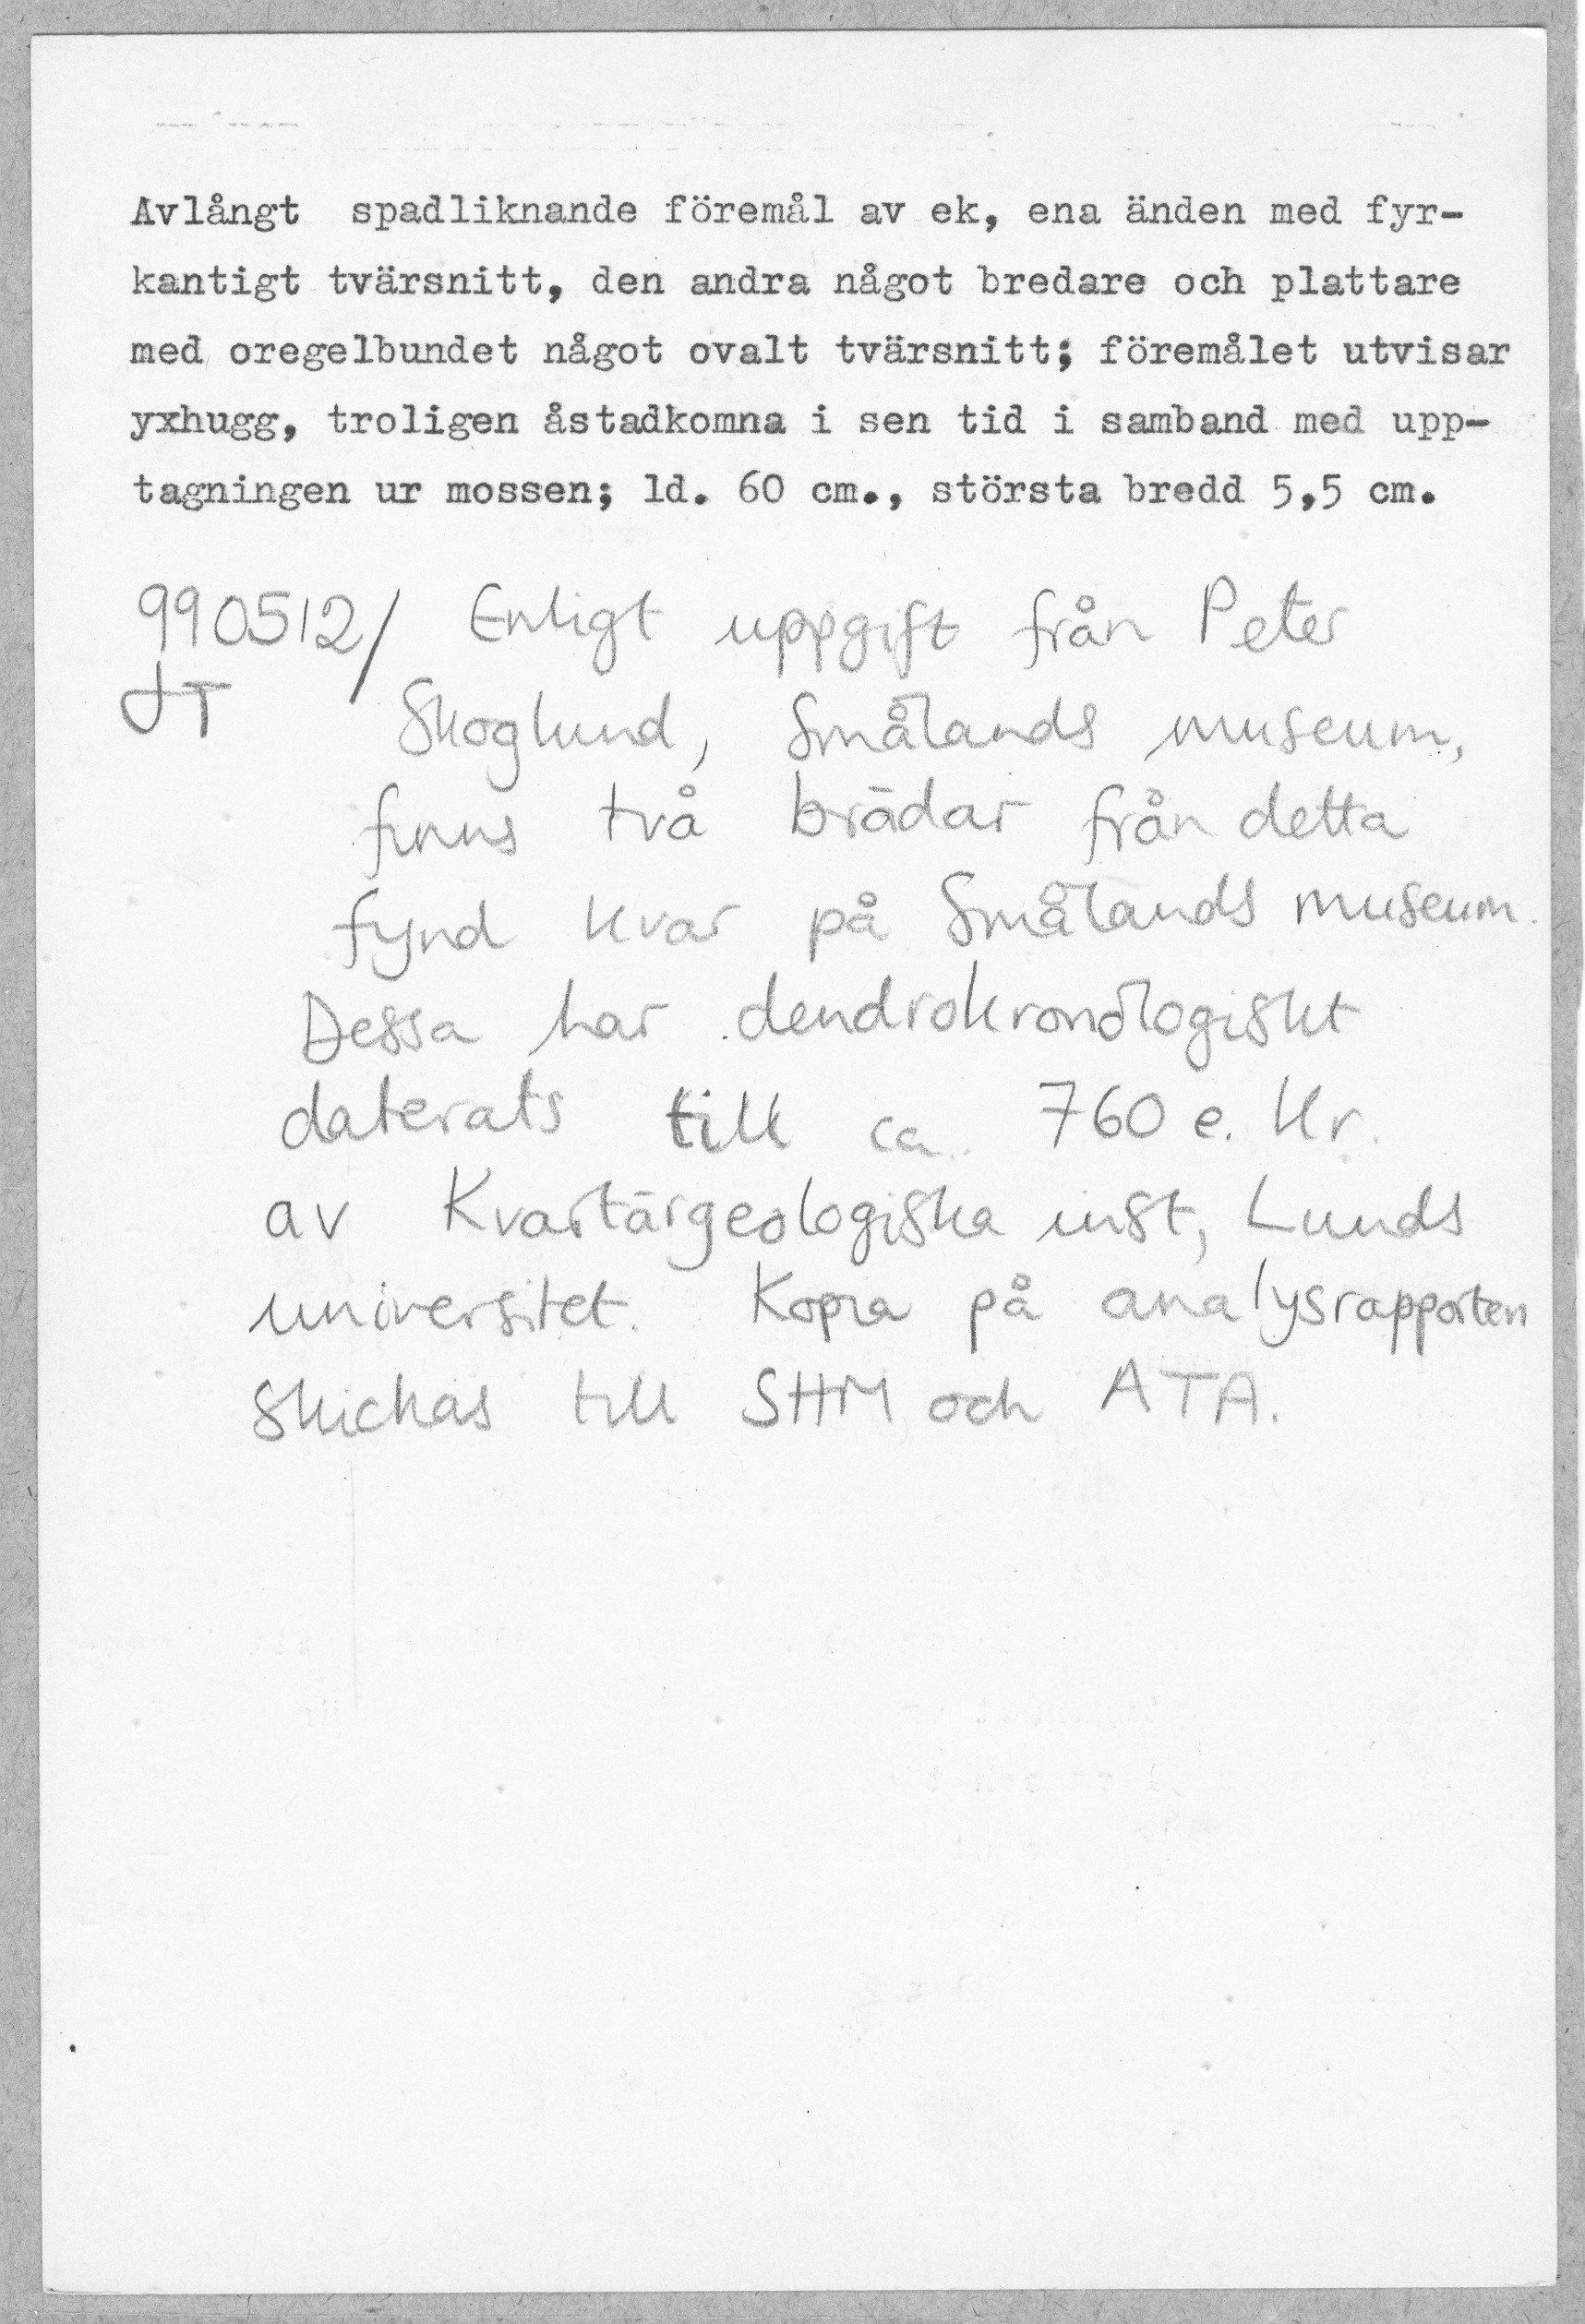 Avlångt spadliknande föremål av ek, ena änden med fyr-
kantigt tvärsnitt, den andra något bredare och plattare
med oregelbundet något ovalt tvärsnitt; föremålet utvisar
yxhugg, troligen åstadkomna i sen tid i samband med upp-
tagningen ur mossen; ld. 60 cm., största bredd 5,5 cm.
990512/ Enligt uppgift från Peter
JT Skoglund, Smålands museum,
finns två brädar från detta
fynd kvar på Smålands museum.
Dessa har dendrokronologiskt
daterats till ca 760 e. Kr.
av Kvartärgeologiska inst, Lunds
universitet. Kopia på analysrapporten
skickas till SHM och ATA.